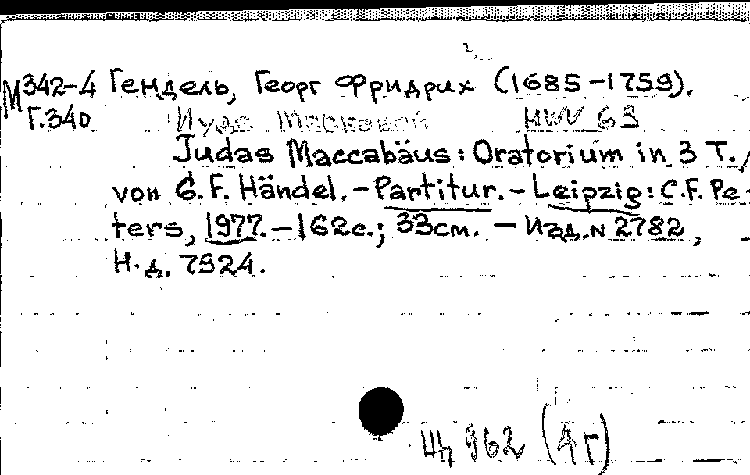 М342-4 Гендель, Георг Фридрих (1685-1759).
Г.340 Иуда Маккавей HWV 63
Judas Maccabäus: Oratorium in 3 T./
von G.F. Händel. – Partitur. – Leipzig: C.F. Pe-
ters, 1977. – 162с.; 33см. – Изд.N 2782,
Н.д. 7924.
962 (4г)